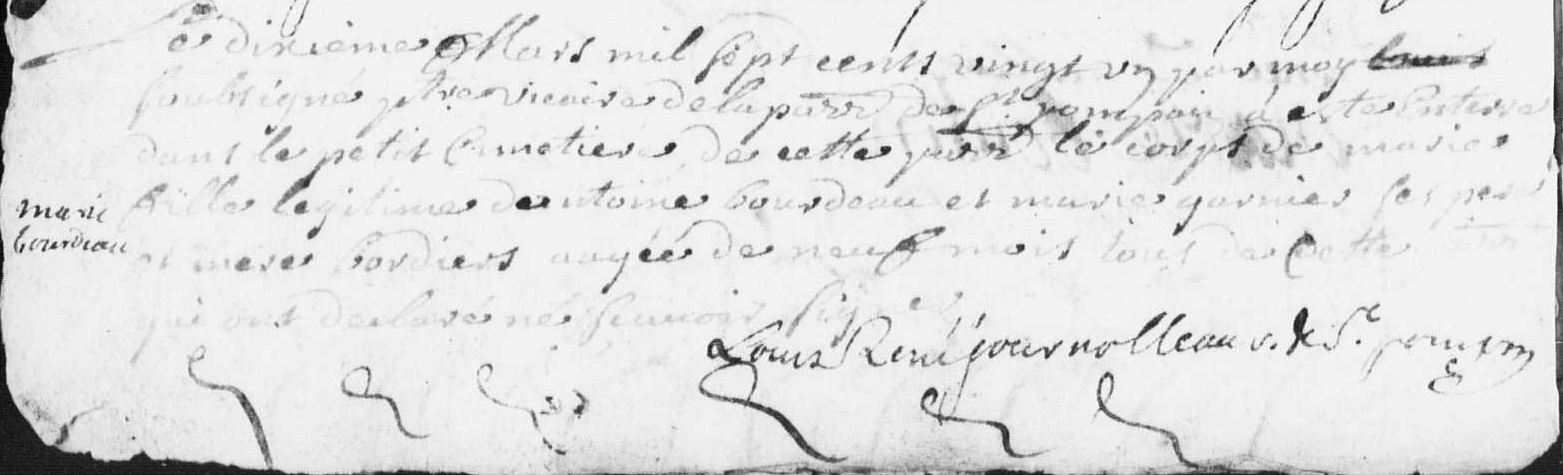 Le dixieme Mars mil sept cents vingt vn par moy
soubsigné ptre vicaire de la parr de St pompain a este enterre
dans le petit Cimetiere de cette parr le corps de marie
marie bourdeau
fille legitime dantoine bourdeau et marie garnier ses pere
et mere bordiers aagée de neuf mois tous de Cette parr
qui ont declaré ne scauoir signer
Louis René journolleau v. de St. pompain